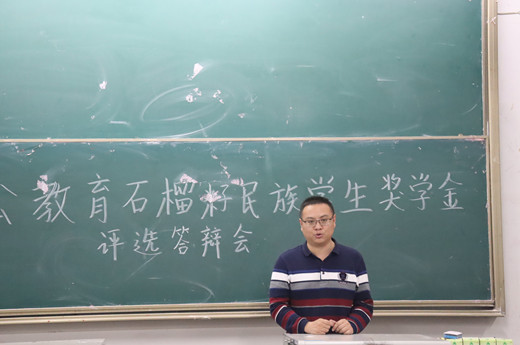 教育石榴籽民族学生奖学金
评选答辩会